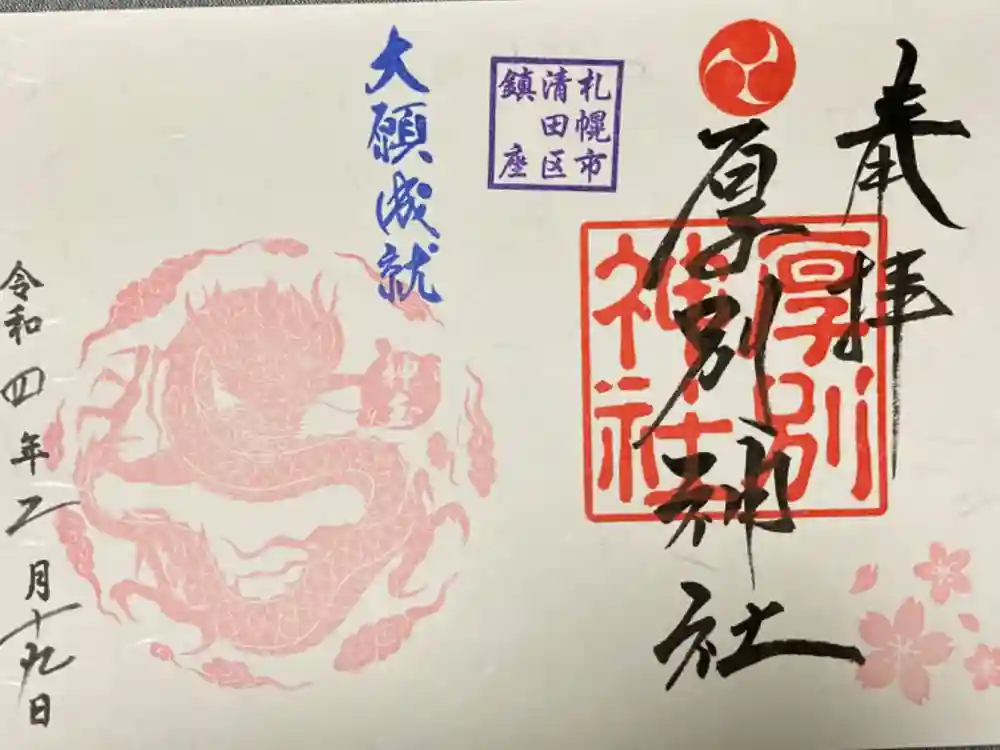 奉拝
厚別神社
厚別
神社
札幌市
清田区
鎮座
大願成就
神玉
令和四年二月十九日